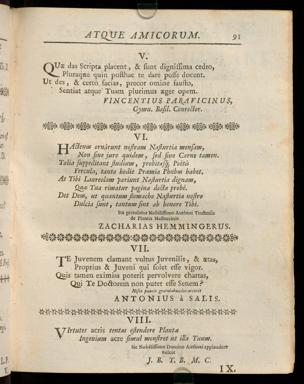 ATQUE AMICORUM. 91
V.
QUæ das Scripta placent, & sunt dignissima cedro,
Pluraque quin posthac te dare posse docent.
Ut des, & certò facias, precor omine fausto,
Sentiat atque Tuam plurimus æger opem.
VINCENTIUS PARAVICINUS,
Gymn. Basil. Conrector.
VI.
HActenus ornârunt nostram Nasturtia mensam,
Non sine jure quidem, sed sine Carne tamen.
Talia suppeditant studium, probitasq; Poëtis
Fercula, tanta hodie Præmia Phœbus habet.
At Tibi Laureolam pariunt Nasturtia dignam,
Quæ Tua rimatur pagina docta probè.
Det Deus, ut quantum stomacho Nasturtia nostro
Dulcia sunt, tantum sint ab honore Tibi.
Ita gratulabatur Nobilissimo Authori Tractatûs
de Plantis Nasturcinis
ZACHARIAS HEMMINGERUS.
VII.
TE Juvenem clamant vultus Juvenilis, & ætas,
Proprius & Juveni qui solet esse vigor.
Quis tamen eximias poterit pervolvere chartas,
Qui Te Doctorem non putet esse Senem?
Hisce paucis gratulabundus accinit
ANTONIUS à SALIS.
VIII.
VIrtutes acris tentas ostendere Planta
Ingenium acre simul monstret ut illa Tuum.
Sic Nobilissimo Domino Authori applaudere
voluit
J. B. T. B. M. C.
IX.